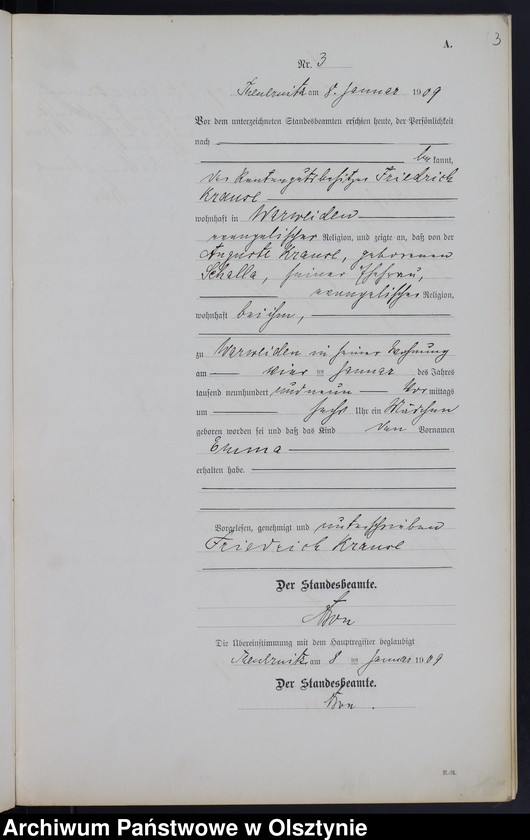 3
A.
Nr. 3
am 8. Januar 1909
Vor dem unterzeichneten Standesbeamten erschien heute, der Persönlichkeit
nach
bekannt,
der Rentengutsbesitzer Friedrich
Krause
wohnhaft in Warweiden
evangelischer Religion, und zeigte an, daß von der
Auguste Krause, geborenen
Schalla, seiner Ehefrau,
evangelischer Religion,
wohnhaft bei ihm,
zu Warweiden in seiner Wohnung
am vier ten Januar des Jahres
tausend neunhundert und neun Vor mittags
um sechs Uhr ein Mädchen
geboren worden sei und daß das Kind den Vornamen
Emma
erhalten habe.
Vorgelesen, genehmigt und unterschrieben
Friedrich Krause
Der Standesbeamte.
Die Übereinstimmung mit dem Hauptregister beglaubigt
am 8 ten Januar 1909
Der Standesbeamte.
Archiwum Państwowe w Olsztynie